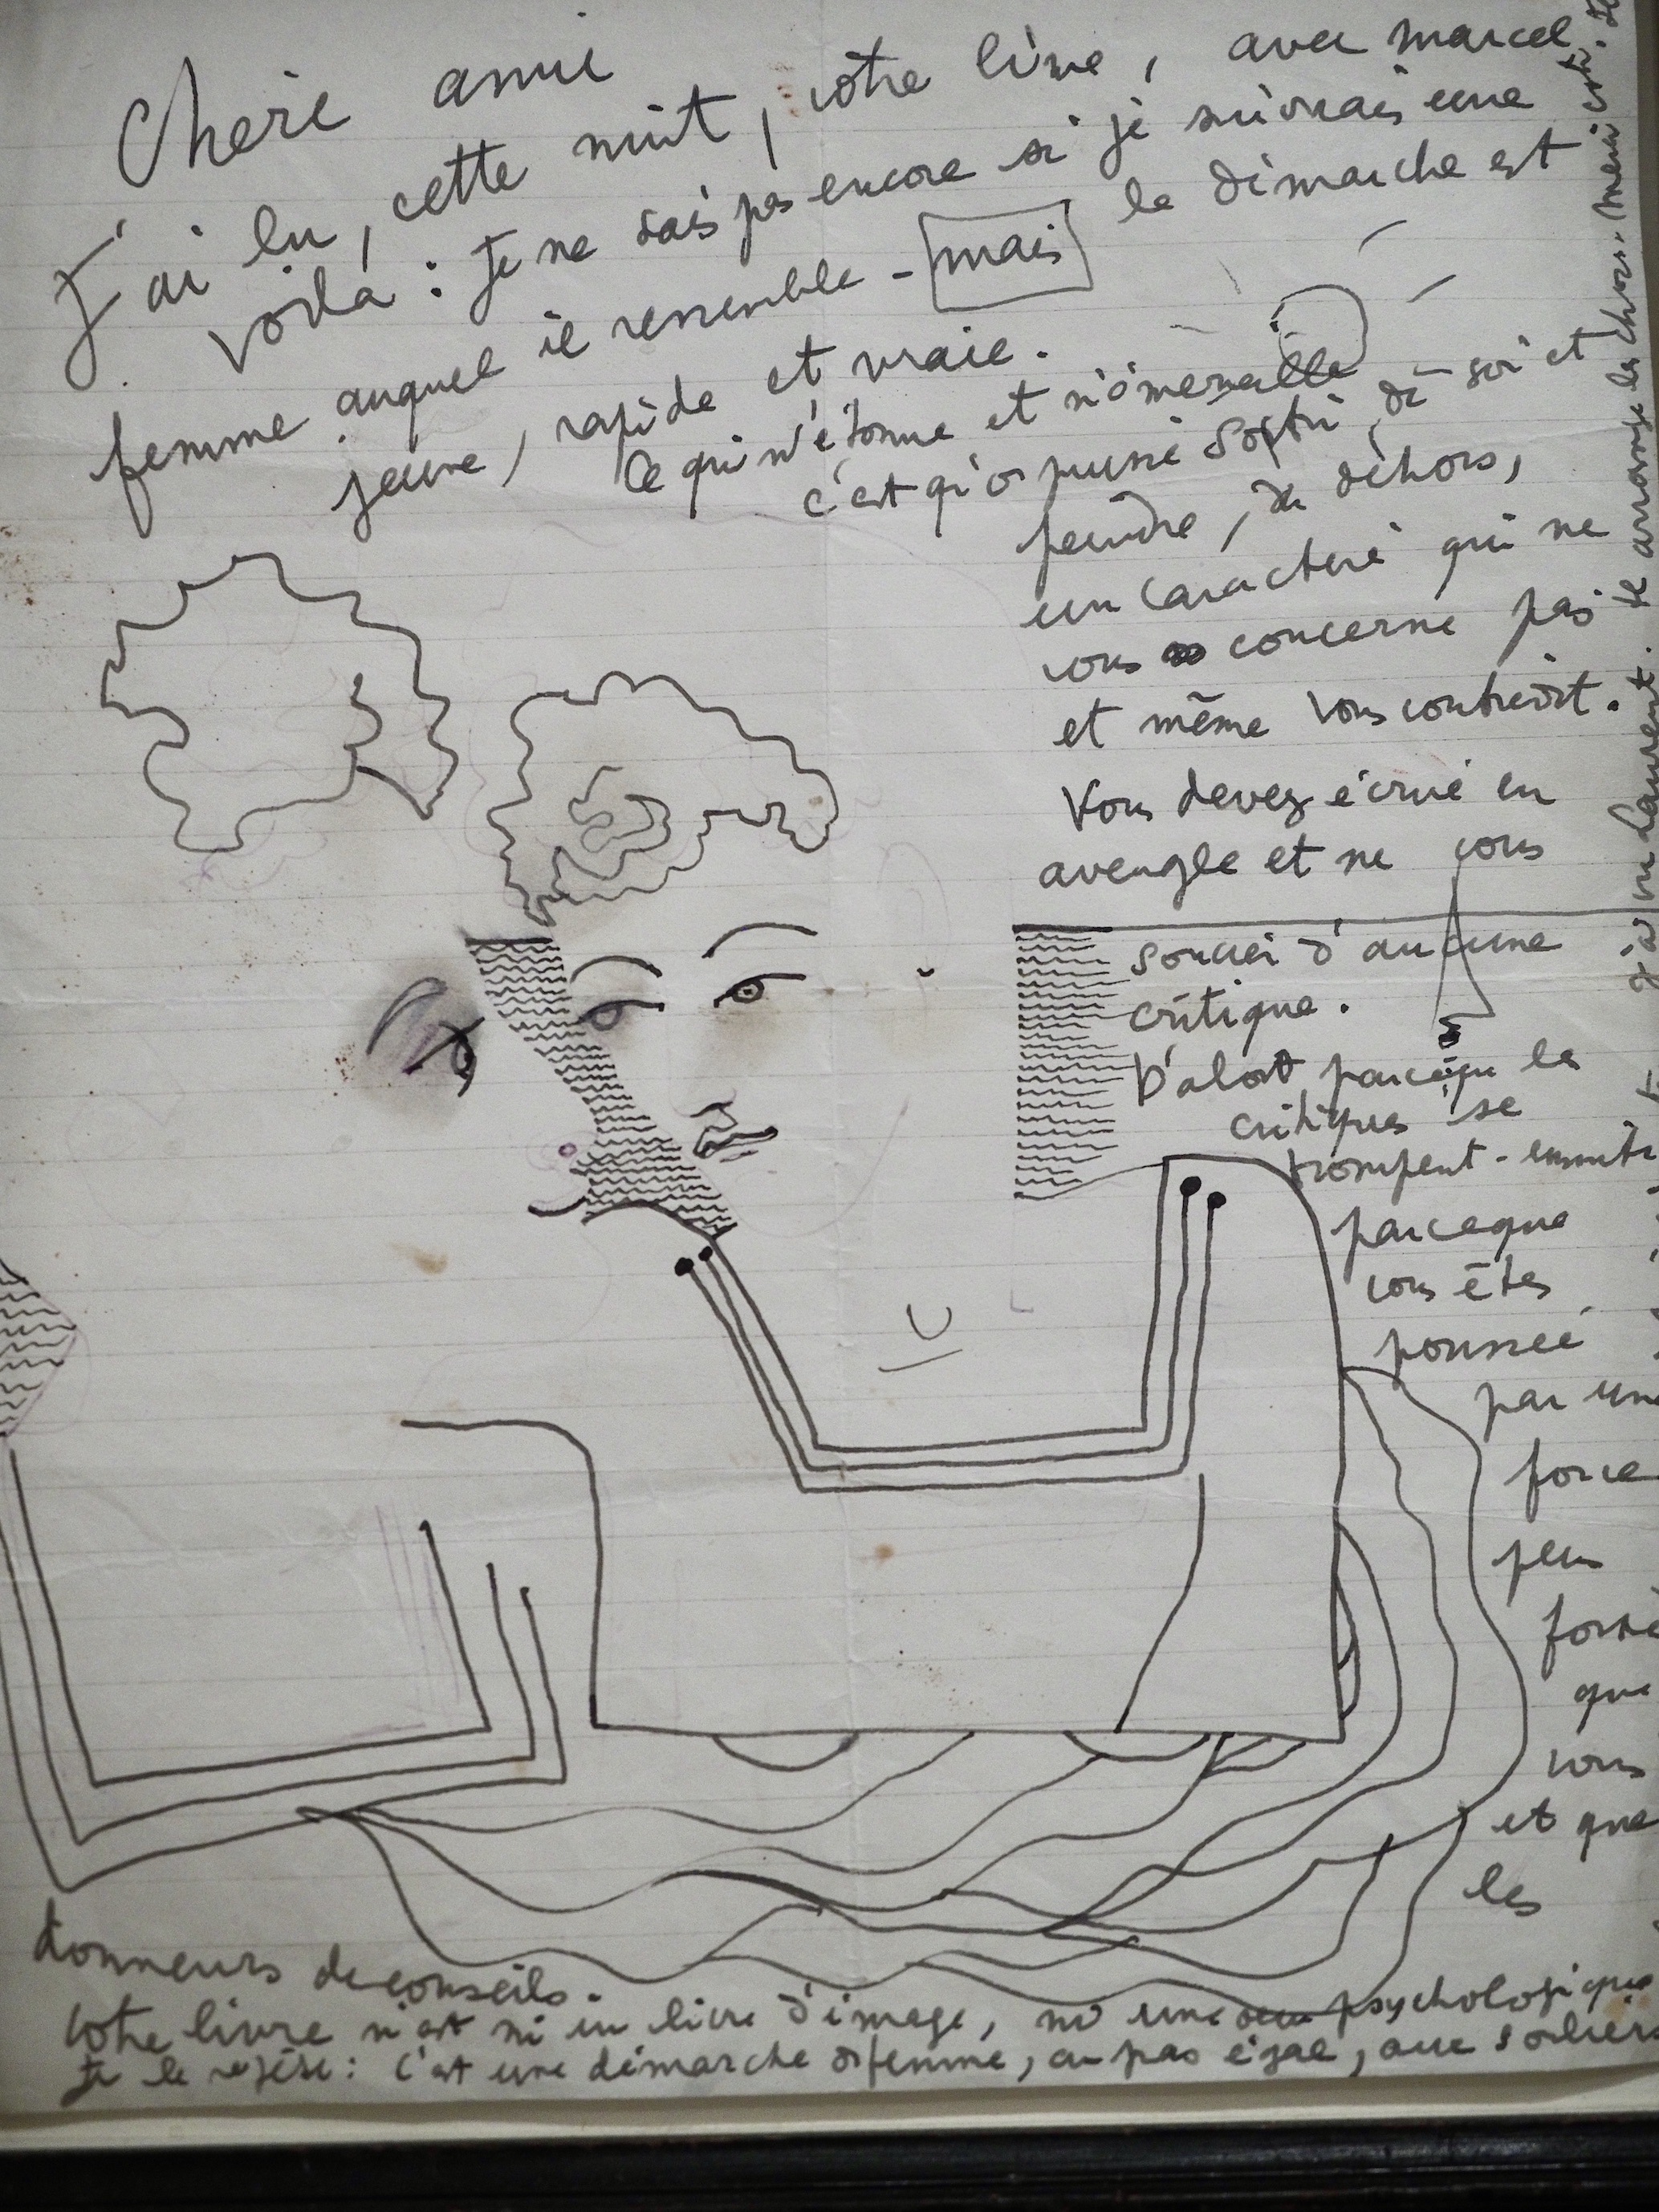 Cherie amie
J'ai lu, cette nuit, votre livre, avec Marcel
voilà : Je ne sais pas encore si je suivrais une
femme auquel il ressemble - mais la démarche est
jeune, rapide et vraie.
Ce qui m'étonne et m'émerveille
c'est qu'on puisse sortir de soi et
peindre, du dehors,
un caractère qui ne
vous concerne pas
et même vous contredit.
Vous devez écrire en
aveugle et ne vous
soucier d'aucune
critique.
D'abord parceque les
critiques se
trompent - ensuite
parceque
vous êtes
poussée
par une
force
plus
forte
que
vous
et que
les
donneurs de conseils.
Votre livre n'est ni un livre d'image, ni une psychologique
Je le répète : c'est une démarche de femme, au pas égal, aux souliers
J'ai vu Laurent. Il arrange les choses. Merci